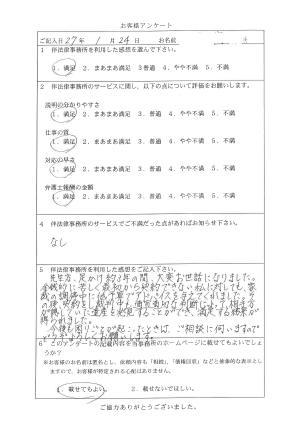 お客様アンケート
ご記入日 27年 1月24日 お名前
1 伴法律事務所を利用した感想を選んで下さい。
1. 満足 2. まあまあ満足 3 普通 4. やや不満 5. 不満
2 伴法律事務所のサービスに関し、以下の点について評価をお願いします。
説明の分かりやすさ
1. 満足 2. まあまあ満足 3. 普通 4. やや不満 5. 不満
仕事の質
1. 満足 2. まあまあ満足 3. 普通 4. やや不満 5. 不満
対応の早さ
1. 満足 2. まあまあ満足 3. 普通 4. やや不満 5. 不満
弁護士報酬の金額
1. 満足 2. まあまあ満足 3. 普通 4. やや不満 5. 不満
4 伴法律事務所のサービスでご不満だった点があればお知らせ下さい。
なし
5 伴法律事務所を利用した感想をご記入下さい。
先生方、足かけ約3年の間、大変お世話になりました。
金銭的に苦しく最初から契約できない私に対しても、家
裁の調停中に低予算でアドバイスを与えてくれました。そ
の後契約をし、裁判中も適切な判断によって相手方
が隠していた遺産を発見することができ、満足する結果が
得られました。
今後も困りごとが起こったときは、ご相談に伺いますので
どうぞよろしくお願いします。
6 このアンケートの記載内容を当事務所のホームページに載せてもよいでしょ
うか?
※お客様のお名前は匿名とし、依頼内容も「相続」、「債権回収」などと抽象的な表示とし
ますので、お客様が特定される心配はありません。
1. 載せてもよい。 2. 載せないでほしい。
ご協力ありがとうございました。